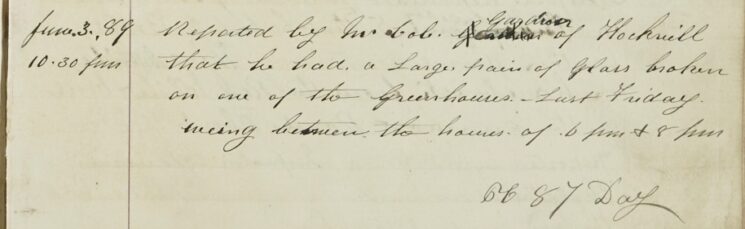 June. 3. 89 Reported by Mr Cob. Gardner of Hockvill
10.30 pm that he had. a Large pain of Glass broken
on one of the Greenhouses. Last Friday.
eveing between the houres. of 6 pm & 8 pm
PC 87 Day